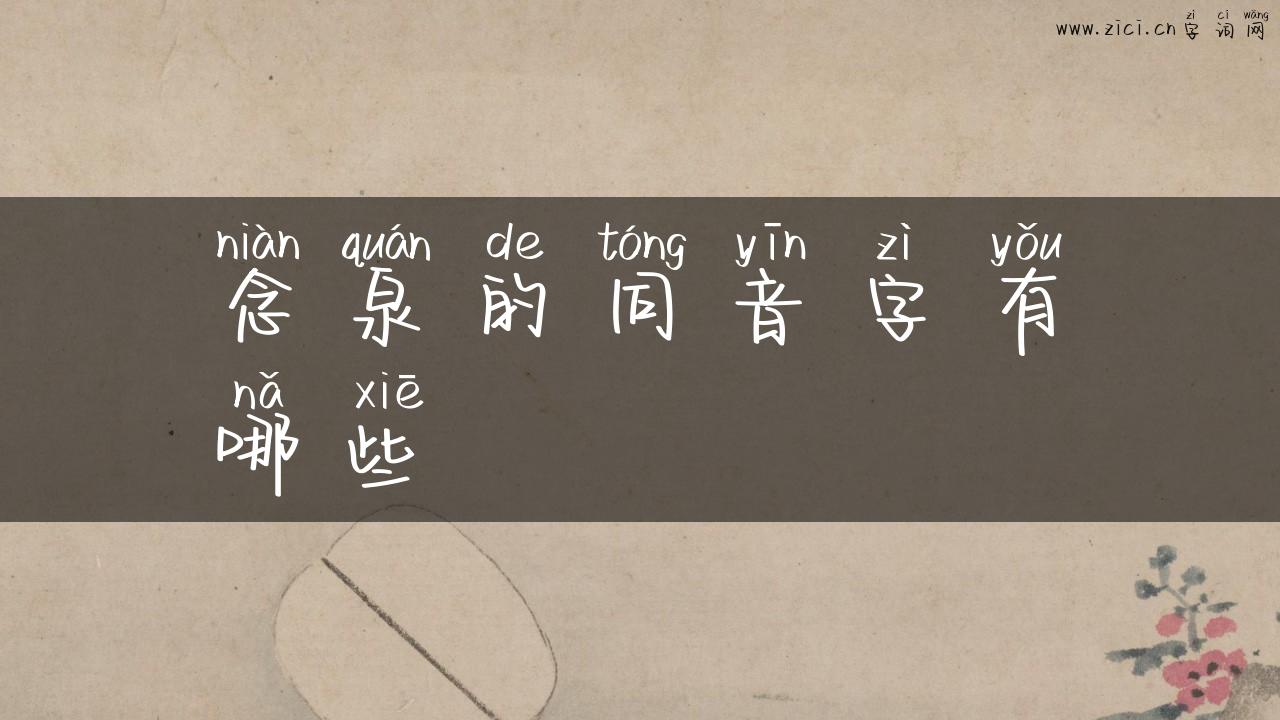 zì cí wǎng
www.zici.cn字词网
niàn quán de tóng yīn zì yǒu
念泉的同音字有
nǎ xiē
哪些